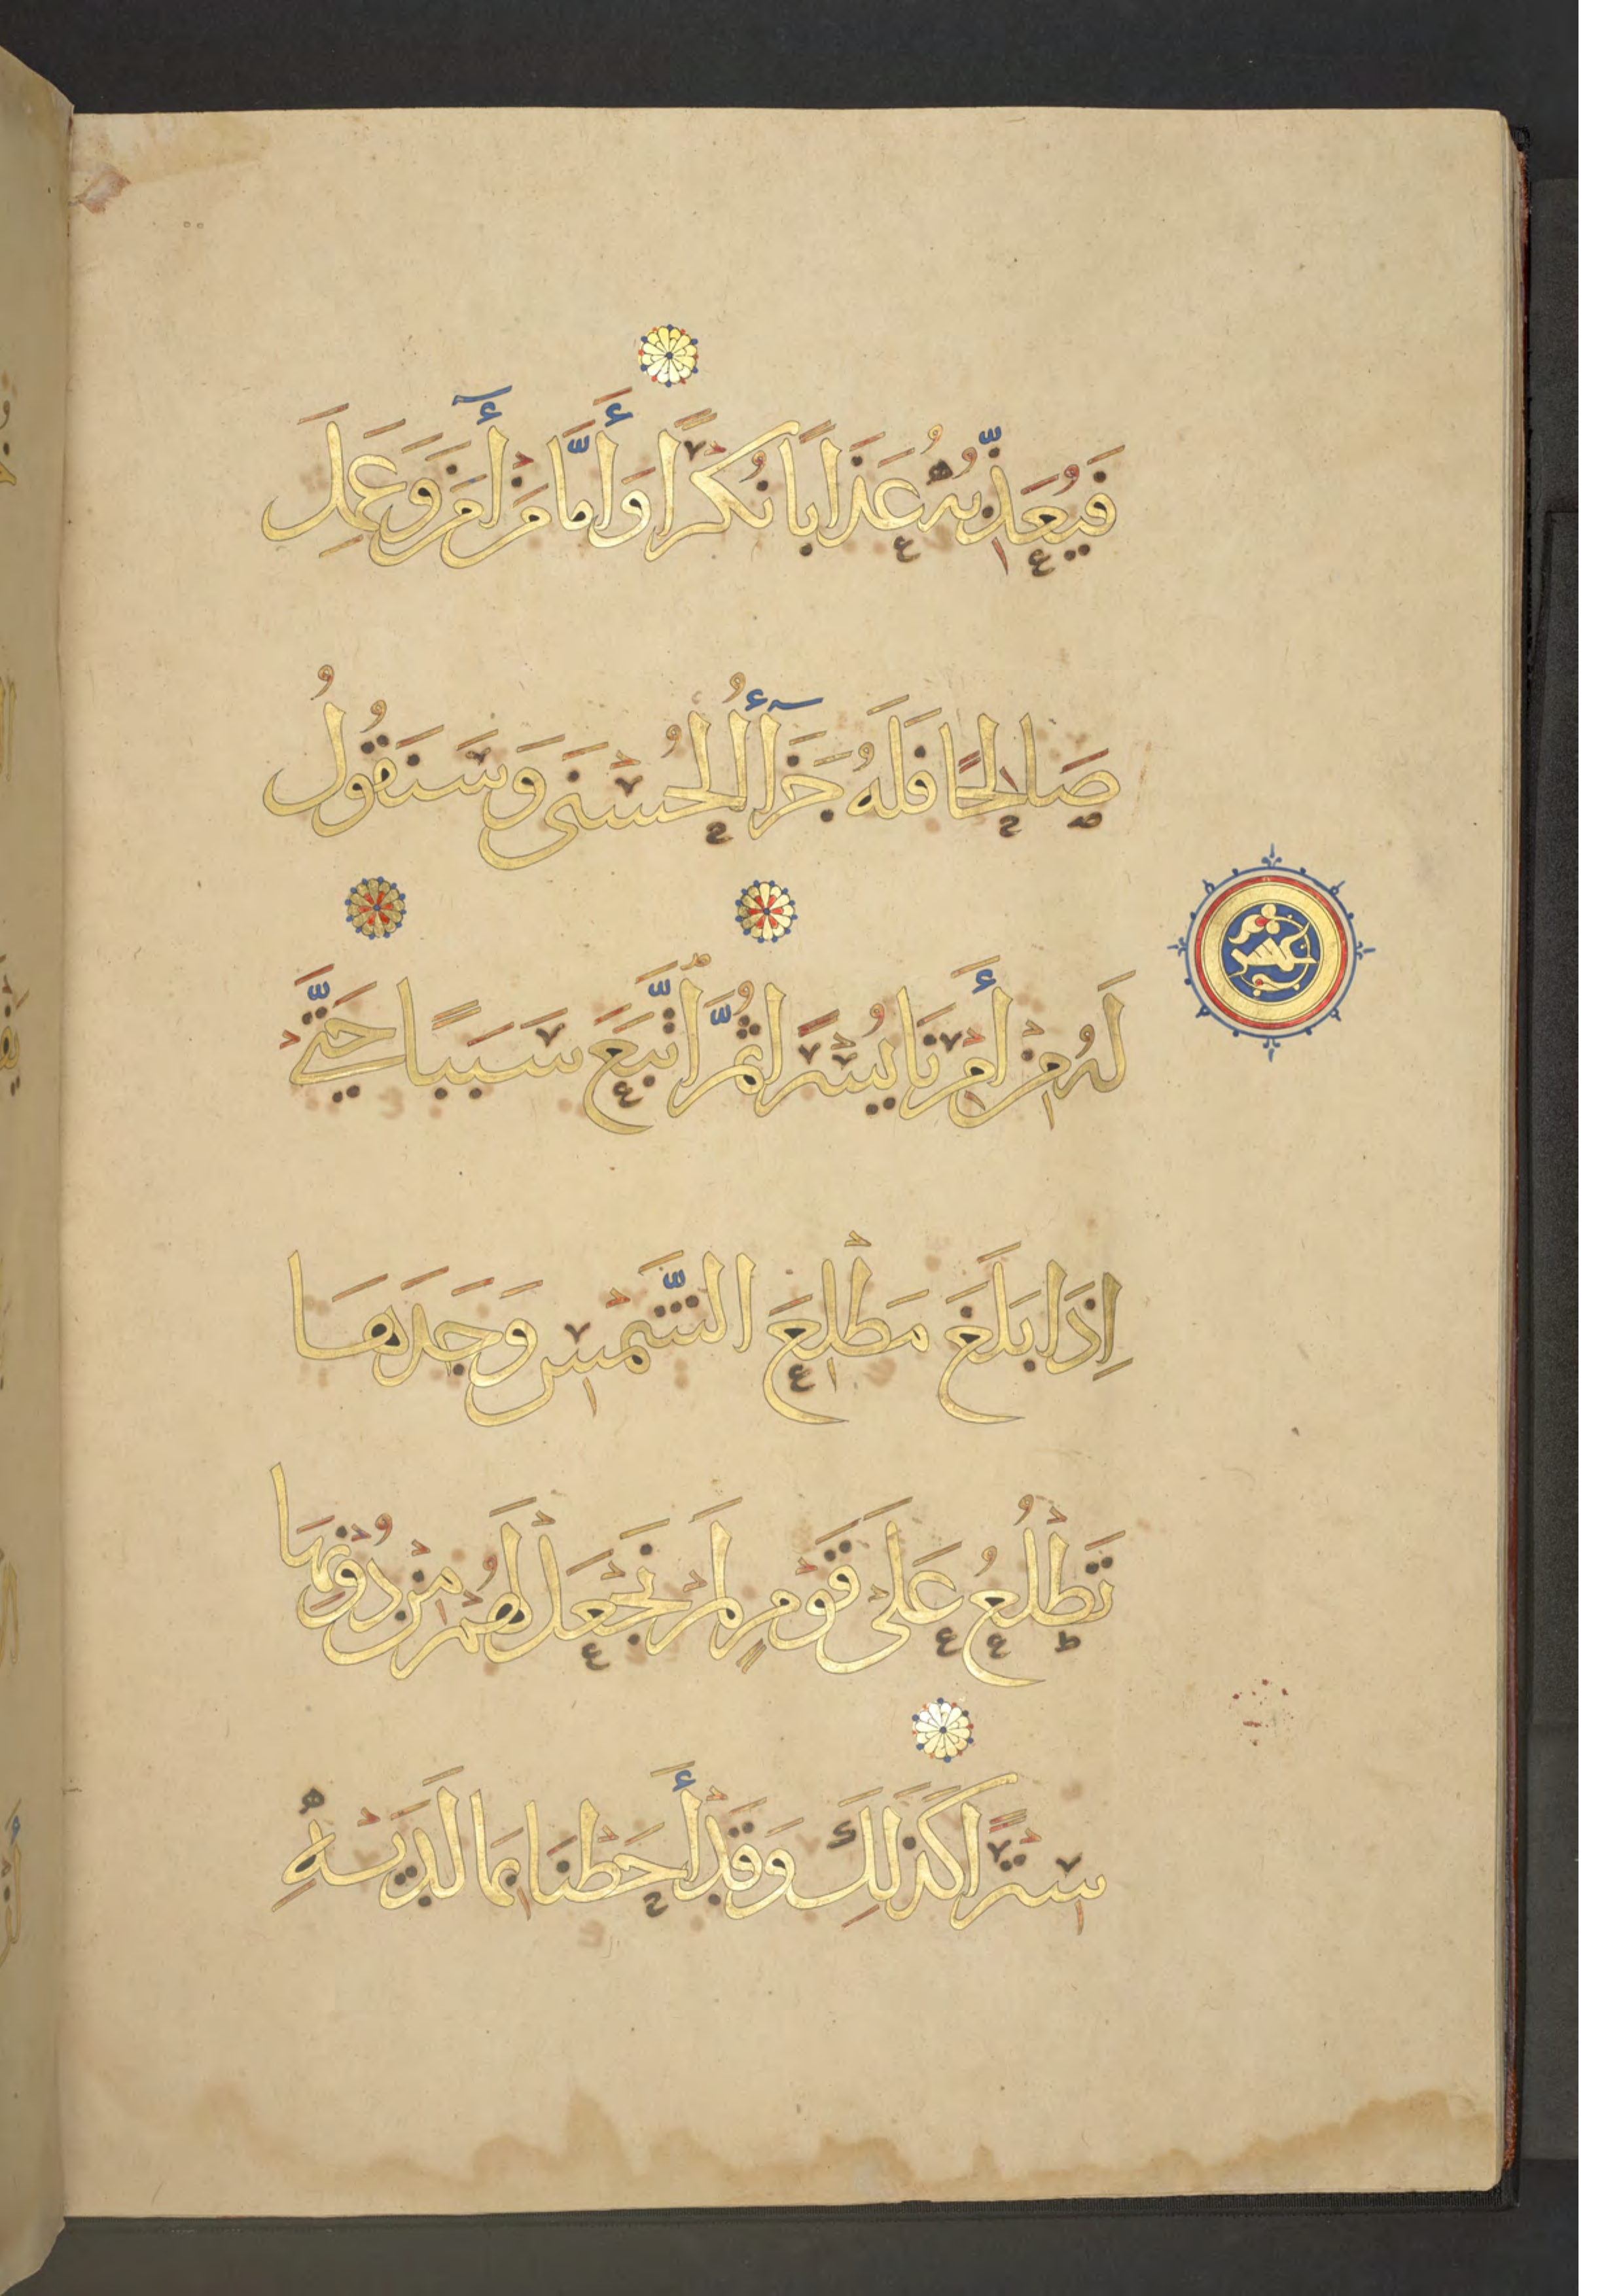 فَيُعَذِّبُهُ عَذَابًا نُكْرًا وَأَمَّا مَنْ أٓمَنَ وَعَمِلَ
صَالِحًا فَلَهُ جَزَآءُ الْحُسْنَى وَسَنَقُولُ
لَهُ مِنْ أَمْرِنَا يُسْرًا ثُمَّ اتَّبَعَ سَبَبًا حَتَّىْ
اِذَا بَلَغَ مَطْلِعَ الشَّمْسِ وَجَدَهَا
تَطْلُعُ عَلَىْ قَوْمٍ لَمْ نَجْعَلْ لَهُمْ مِنْ دُوْنِهَا
سِتْرًا كَذَلِكَ وَقَدْ أَحَطْنَا بِمَا لَدَيْهِ